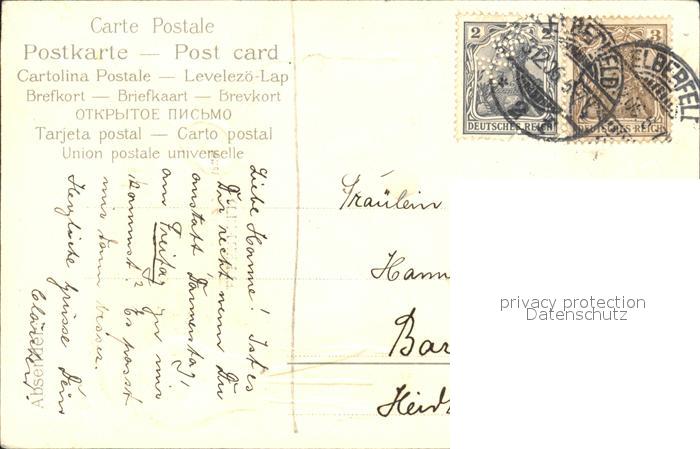 Carte Postale
Postkarte — Post card
Cartolina Postale — Levelező-Lap
Brefkort — Briefkaart — Brevkort
ОТКРЫТОЕ ПИСЬМО
Tarjeta postal — Carto postal
Union postale universelle
2 2
DEUTSCHES REICH
3
DEUTSCHES REICH
ELBERFELD
ELBERFELD
Liebe Hanne! Ist es
Dir recht wenn Du
anstatt Donnerstag,
am Freitag zu mir
kommst? Es passt
mir dann besser.
Herzliche Grüsse Dein
Clärchen.
Absender
Fräulein
Hann
Bar
Heid
privacy protection
Datenschutz